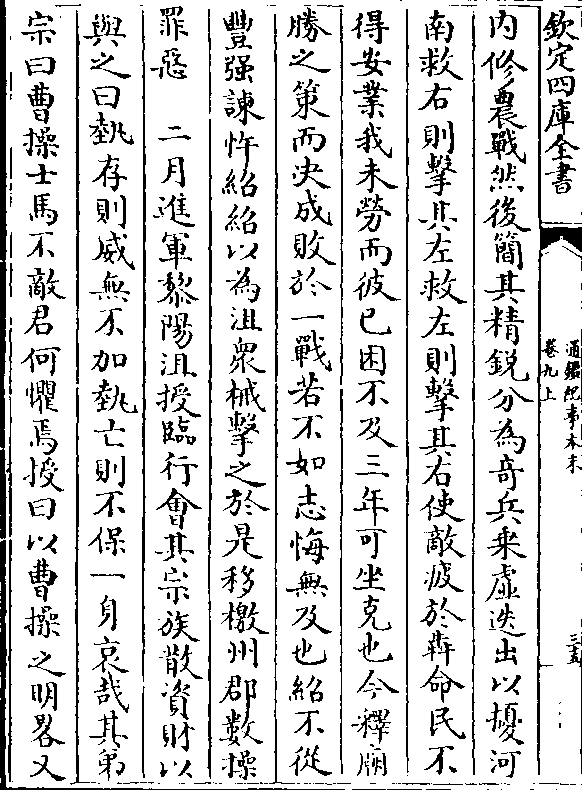 欽定四庫全書
通鑑紀事本末
卷九上
三五
内修農戰然後簡其精鋭分為奇兵乘虛迭出以擾河
南救右則擊其左救左則擊其右使敵疲於奔命民不
得安業我未勞而彼已困不及三年可坐克也今釋廟
勝之策而決成敗於一戰若不如志悔無及也紹不從
豐强諫忤紹紹以為沮衆械擊之於是移檄州郡數操
罪惡 二月進軍黎陽沮授臨行會其宗族散資財以
與之曰埶存則威無不加埶亡則不保一身哀哉其弟
宗曰曹操士馬不敵君何懼焉授曰以曹操之明畧又